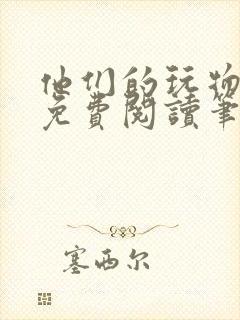 他们的玩物
免費閱讀筆
塞西尔